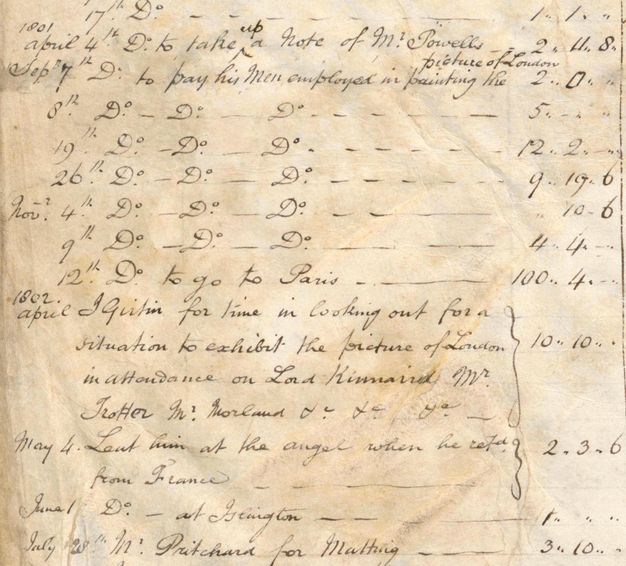 17th Do. — — — — — — 1 " 1 " "
1801
april 4th Do. to take up a Note of Mr. Powells — 2 " 11 " 8 "
picture of London
Sepr. 7th Do. to pay his Men employed in painting the 2 " 0 " "
8th Do. — Do. — Do. — — — — 5 " — "
19th Do. — Do. — Do. " — — — — 12 " 2 " —
26th Do. — Do. — Do. — — — — 9 " 19 " 6
Novr. 4th Do. — Do. — Do. — — — — " 10 " 6
9th Do. — Do. — Do. — — — — 4 " 4 " —
12th Do. to go to Paris — — — 100 " 4 " —
1802.
april I Girtin for time in looking out for a
situation to exhibit the picture of London 10 " 10 " "
in attendance on Lord Kinnaird Mr.
Trotter Mr. Morland &c &c, &c —
May 4. Lent him at the angel when he retd. 2 " 3 " 6
from France — — —
June 1 Do. — at Islington — — — 1 " " "
July 28th Mr. Pritchard for Matting — — 3 " 10 " "